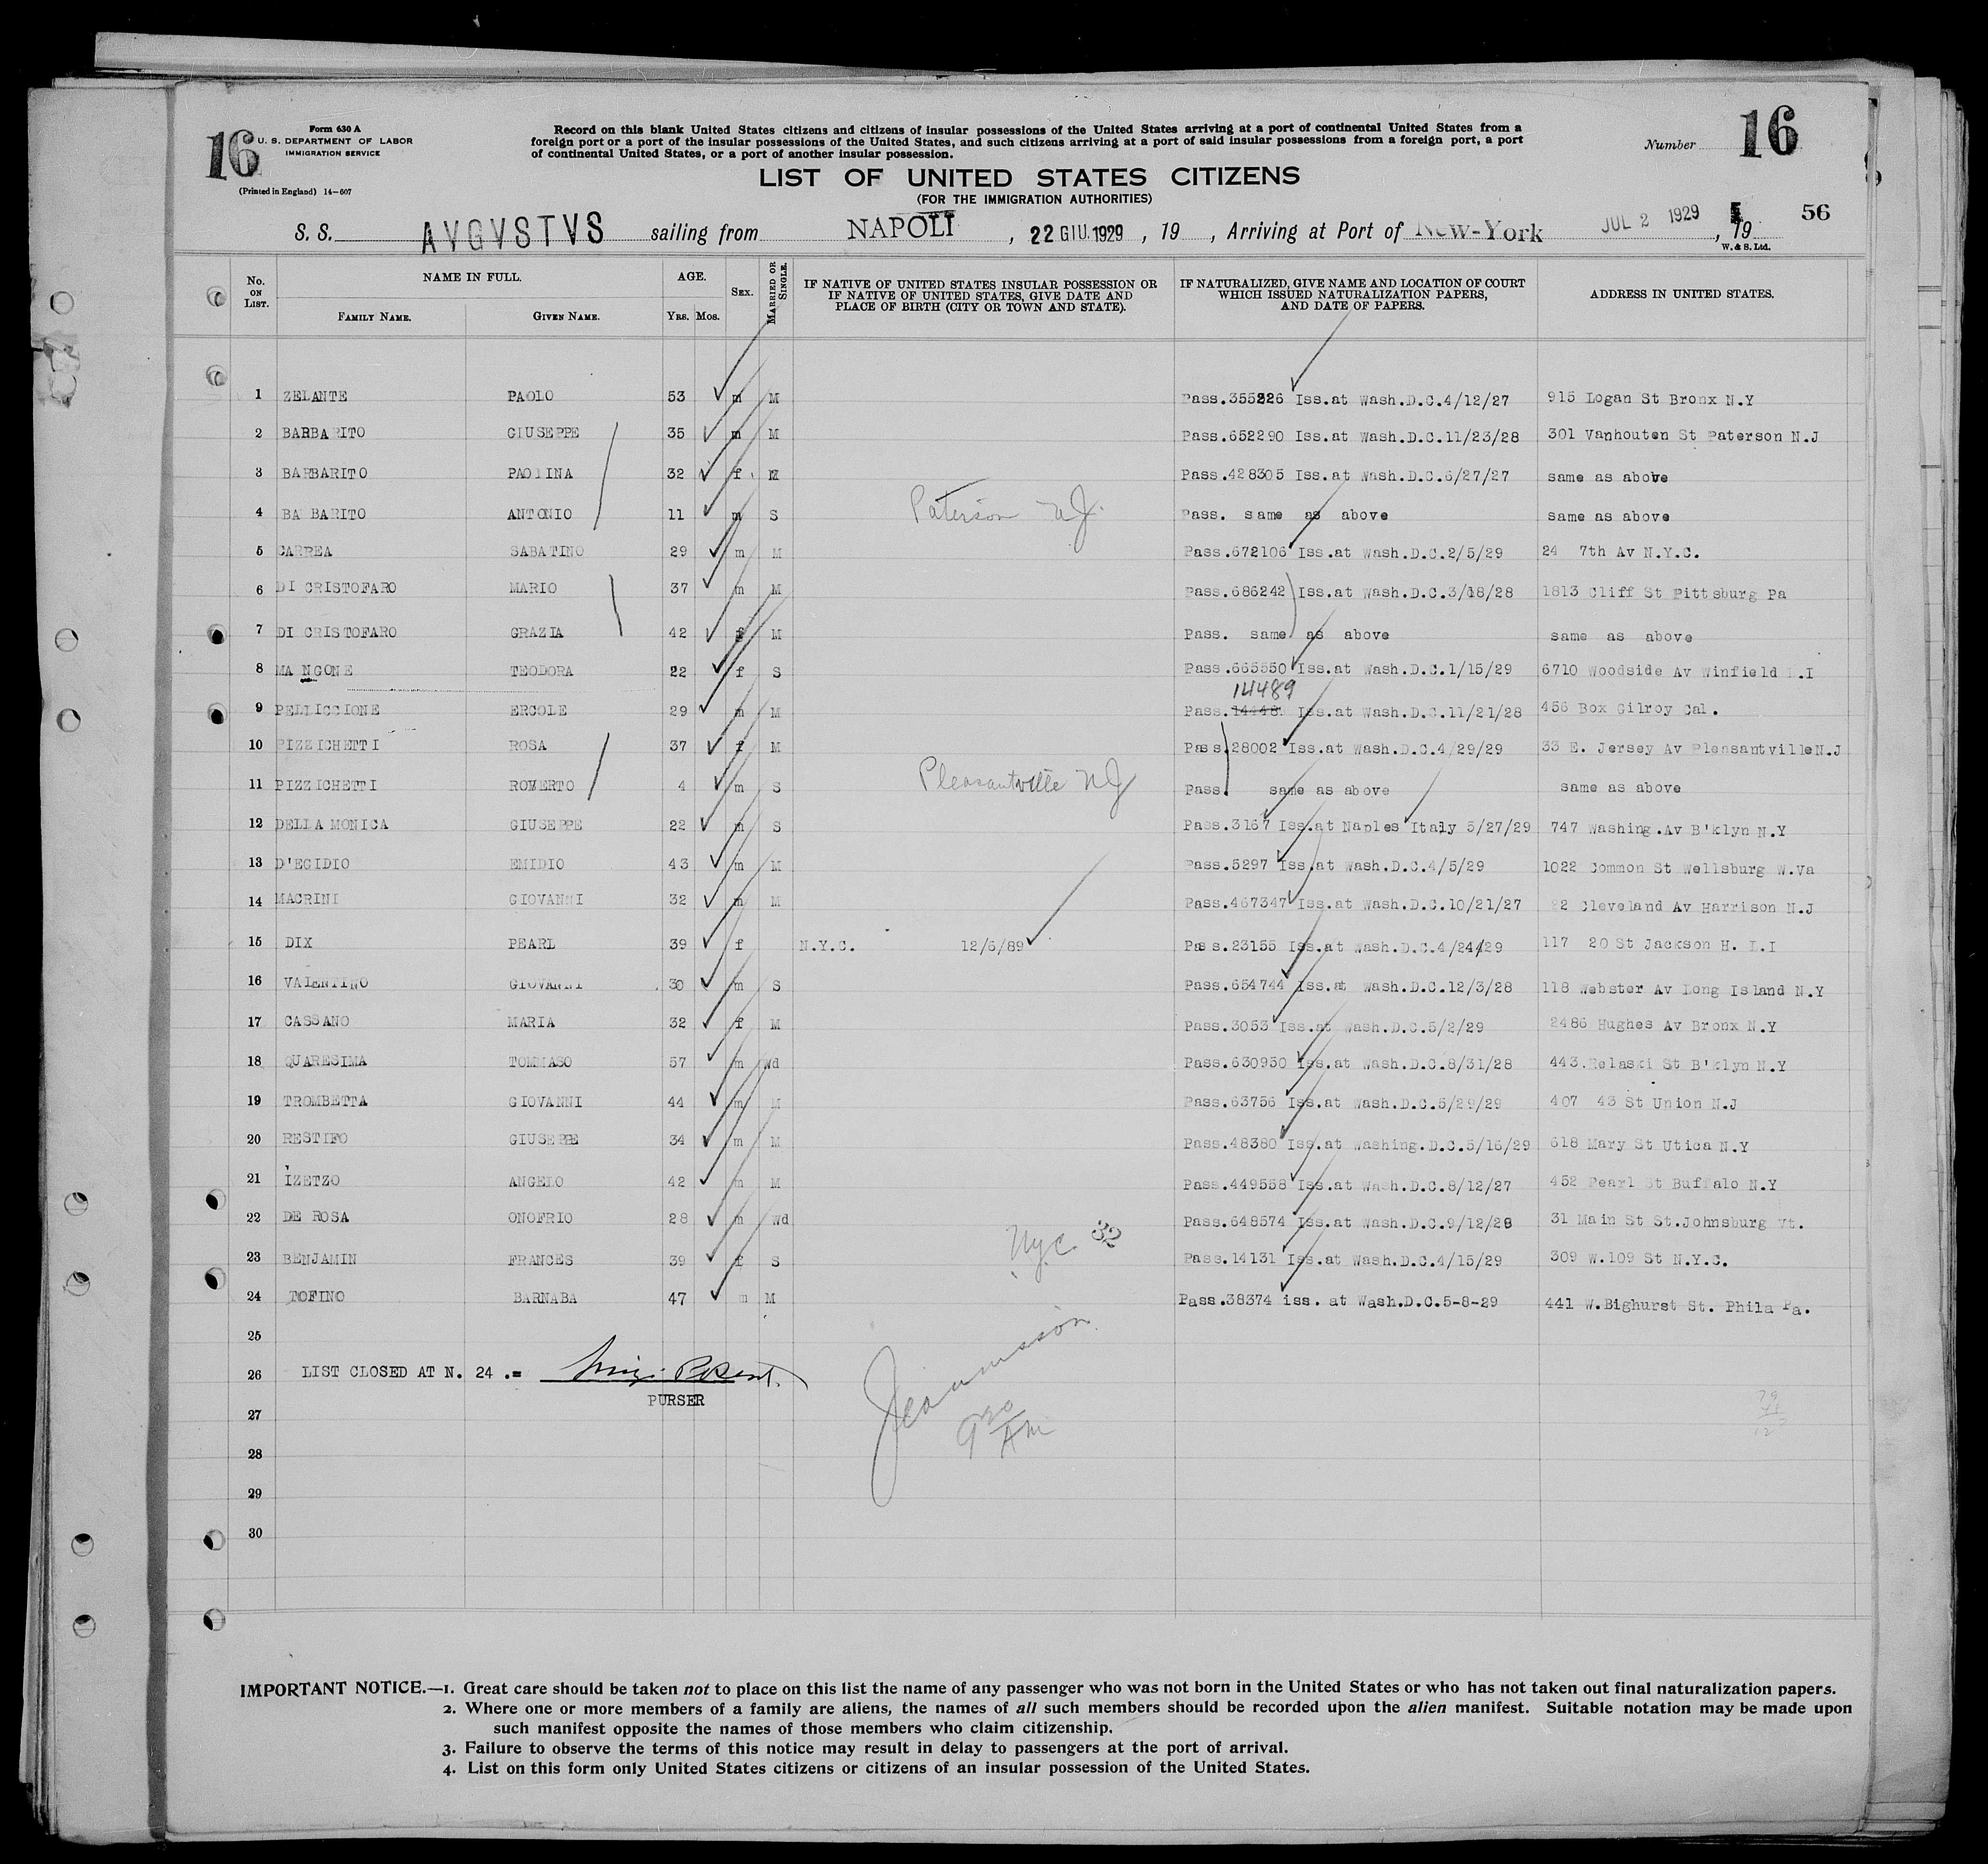 16
Form 630 A
U. S. DEPARTMENT OF LABOR
IMMIGRATION SERVICE
(Printed in England) 14—607
Record on this blank United States citizens and citizens of insular possessions of the United States arriving at a port of continental United States from a
foreign port or a port of the insular possessions of the United States, and such citizens arriving at a port of said insular possessions from a foreign port, a port
of continental United States, or a port of another insular possession.
Number 16
LIST OF UNITED STATES CITIZENS
(FOR THE IMMIGRATION AUTHORITIES)
56
S. S. AVGVSTVS sailing from NAPOLI, 22 GIU. 1929, 19 , Arriving at Port of New-York JUL 2 1929, 19
W. & S. Ltd.
No. ON LIST. NAME IN FULL. AGE. SEX. MARRIED OR SINGLE. IF NATIVE OF UNITED STATES INSULAR POSSESSION OR IF NATIVE OF UNITED STATES, GIVE DATE AND PLACE OF BIRTH (CITY OR TOWN AND STATE). IF NATURALIZED, GIVE NAME AND LOCATION OF COURT WHICH ISSUED NATURALIZATION PAPERS, AND DATE OF PAPERS. ADDRESS IN UNITED STATES.
FAMILY NAME. GIVEN NAME. YRS. MOS.
1 ZELANTE PAOLO 53 m M Pass.355226 Iss.at Wash.D.C.4/12/27 915 Logan St Bronx N.Y
2 BARBARITO GIUSEPPE 35 m M Pass.652290 Iss.at Wash.D.C.11/23/28 301 Vanhouten St Paterson N.J
3 BARBARITO PAOLINA 32 f M Pass.428305 Iss.at Wash.D.C.6/27/27 same as above
4 BA BARITO ANTONIO 11 m S Paterson N.J. Pass. same as above same as above
5 CARREA SABATINO 29 m M Pass.672106 Iss.at Wash.D.C.2/5/29 24 7th Av N.Y.C.
6 DI CRISTOFARO MARIO 37 m M Pass.686242 Iss.at Wash.D.C.3/18/28 1813 Cliff St Pittsburg Pa
7 DI CRISTOFARO GRAZIA 42 f M Pass. same as above same as above
8 MANGONE TEODORA 22 f S Pass.665550 Iss.at Wash.D.C.1/15/29 6710 Woodside Av Winfield L.I
14489
9 PELLICCIONE ERCOLE 29 m M Pass.14448 Iss.at Wash.D.C.11/21/28 456 Box Gilroy Cal.
10 PIZZICHETTI ROSA 37 f M Pass.28002 Iss.at Wash.D.C.4/29/29 33 E. Jersey Av Pleasantville N.J
11 PIZZICHETTI ROMERTO 4 m S Pleasantville NJ Pass. same as above same as above
12 DELLA MONICA GIUSEPPE 22 m S Pass.3167 Iss.at Naples Italy 5/27/29 747 Washing.Av B'klyn N.Y
13 D'EGIDIO EMIDIO 43 m M Pass.5297 Iss.at Wash.D.C.4/5/29 1022 Common St Wellsburg W.Va
14 MACRINI GIOVANNI 32 m M Pass.467347 Iss.at Wash.D.C.10/21/27 22 Cleveland Av Harrison N.J
15 DIX PEARL 39 f N.Y.C. 12/6/89 Pass.23155 Iss.at Wash.D.C.4/24/29 117 20 St Jackson H. L.I
16 VALENTINO GIOVANNI 30 m S Pass.654744 Iss.at Wash.D.C.12/3/28 118 Webster Av Long Island N.Y
17 CASSANO MARIA 32 f M Pass.3053 Iss.at Wash.D.C.5/2/29 2486 Hughes Av Bronx N.Y
18 QUARESIMA TOMMASO 57 m Wd Pass.630950 Iss.at Wash.D.C.8/31/28 443.Relaski St B'klyn N.Y
19 TROMBETTA GIOVANNI 44 m M Pass.63756 Iss.at Wash.D.C.5/29/29 407 43 St Union N.J
20 RESTIFO GIUSEPPE 34 m M Pass.48380 Iss.at Washing.D.C.5/16/29 618 Mary St Utica N.Y
21 IZETZO ANGELO 42 m M Pass.449558 Iss.at Wash.D.C.8/12/27 452 Pearl St Buffalo N.Y
22 DE ROSA ONOFRIO 28 m Wd Pass.648574 Iss.at Wash.D.C.9/12/28 31 Main St St.Johnsburg Vt.
23 BENJAMIN FRANCES 39 f S Nyc 32 Pass.14131 Iss.at Wash.D.C.4/15/29 309 W.109 St N.Y.C.
24 TOFINO BARNABA 47 m M Pass.38374 iss. at Wash.D.C.5-8-29 441 W.Bighurst St. Phila Pa.
25
26 LIST CLOSED AT N. 24 .=
PURSER
27
9 30 AM
28
29
30
IMPORTANT NOTICE.—1. Great care should be taken not to place on this list the name of any passenger who was not born in the United States or who has not taken out final naturalization papers.
2. Where one or more members of a family are aliens, the names of all such members should be recorded upon the alien manifest. Suitable notation may be made upon
such manifest opposite the names of those members who claim citizenship.
3. Failure to observe the terms of this notice may result in delay to passengers at the port of arrival.
4. List on this form only United States citizens or citizens of an insular possession of the United States.